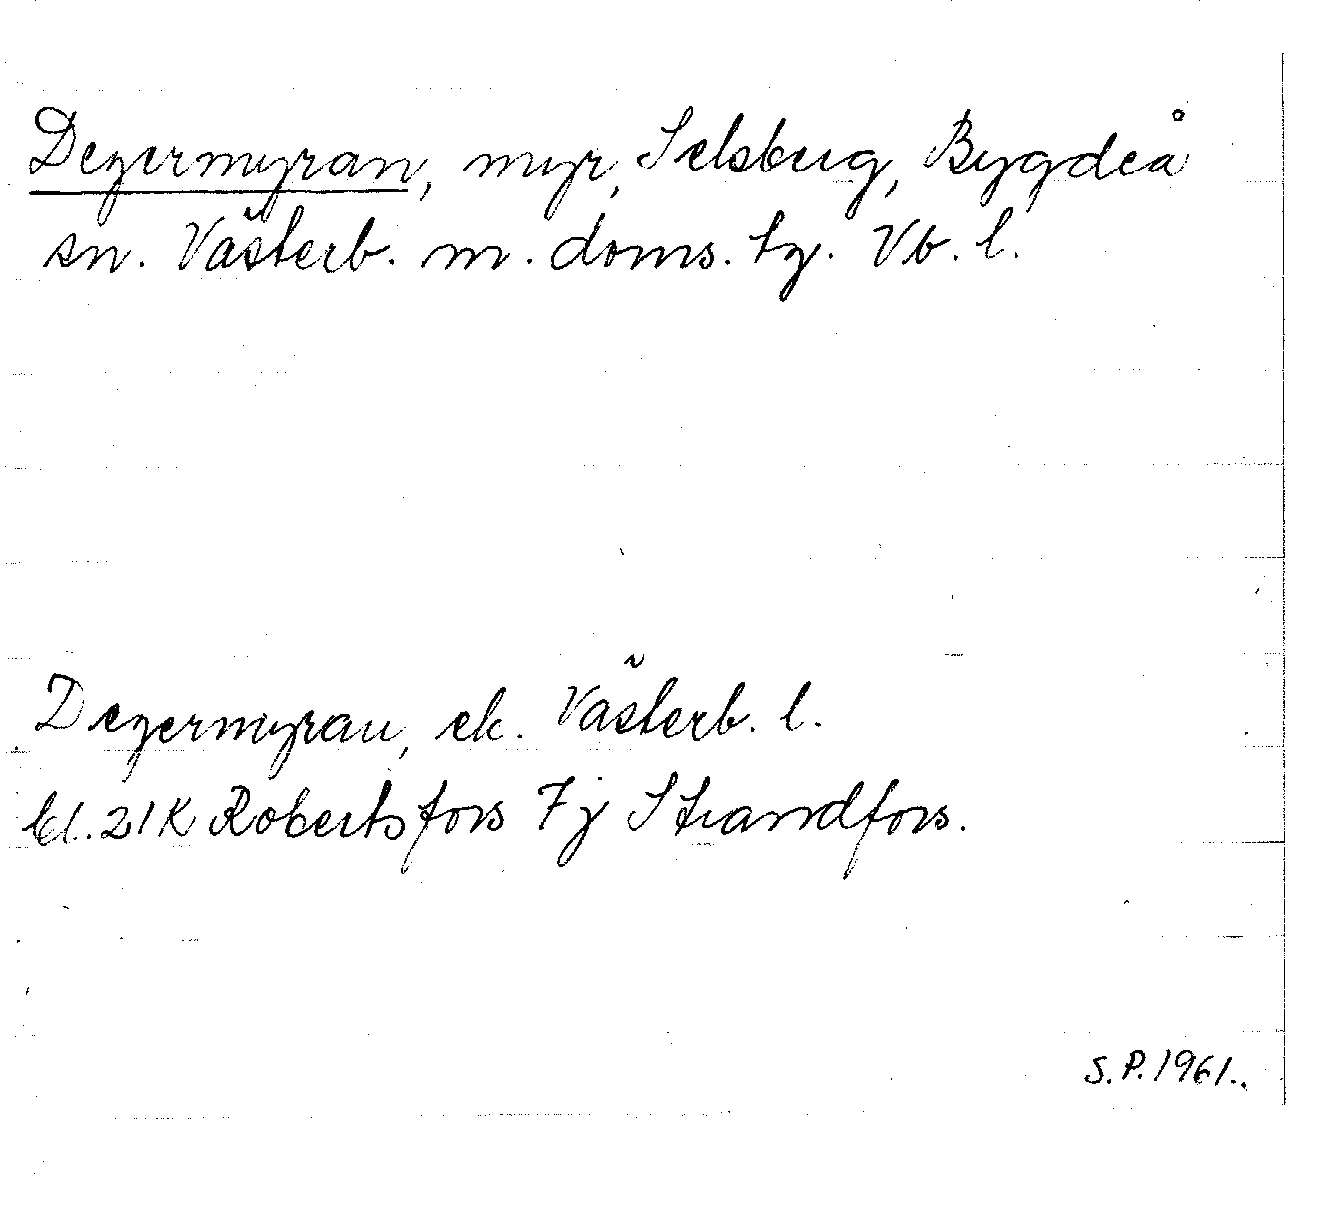 Degermyran, myr, Selsberg, Bygdeå
sn. Västerb. m. doms. tg. Vb. l.
Degermyran, ek. Västerb. l.
bl. 21K Robertsfors 7j Strandfors.
S.P. 1961.